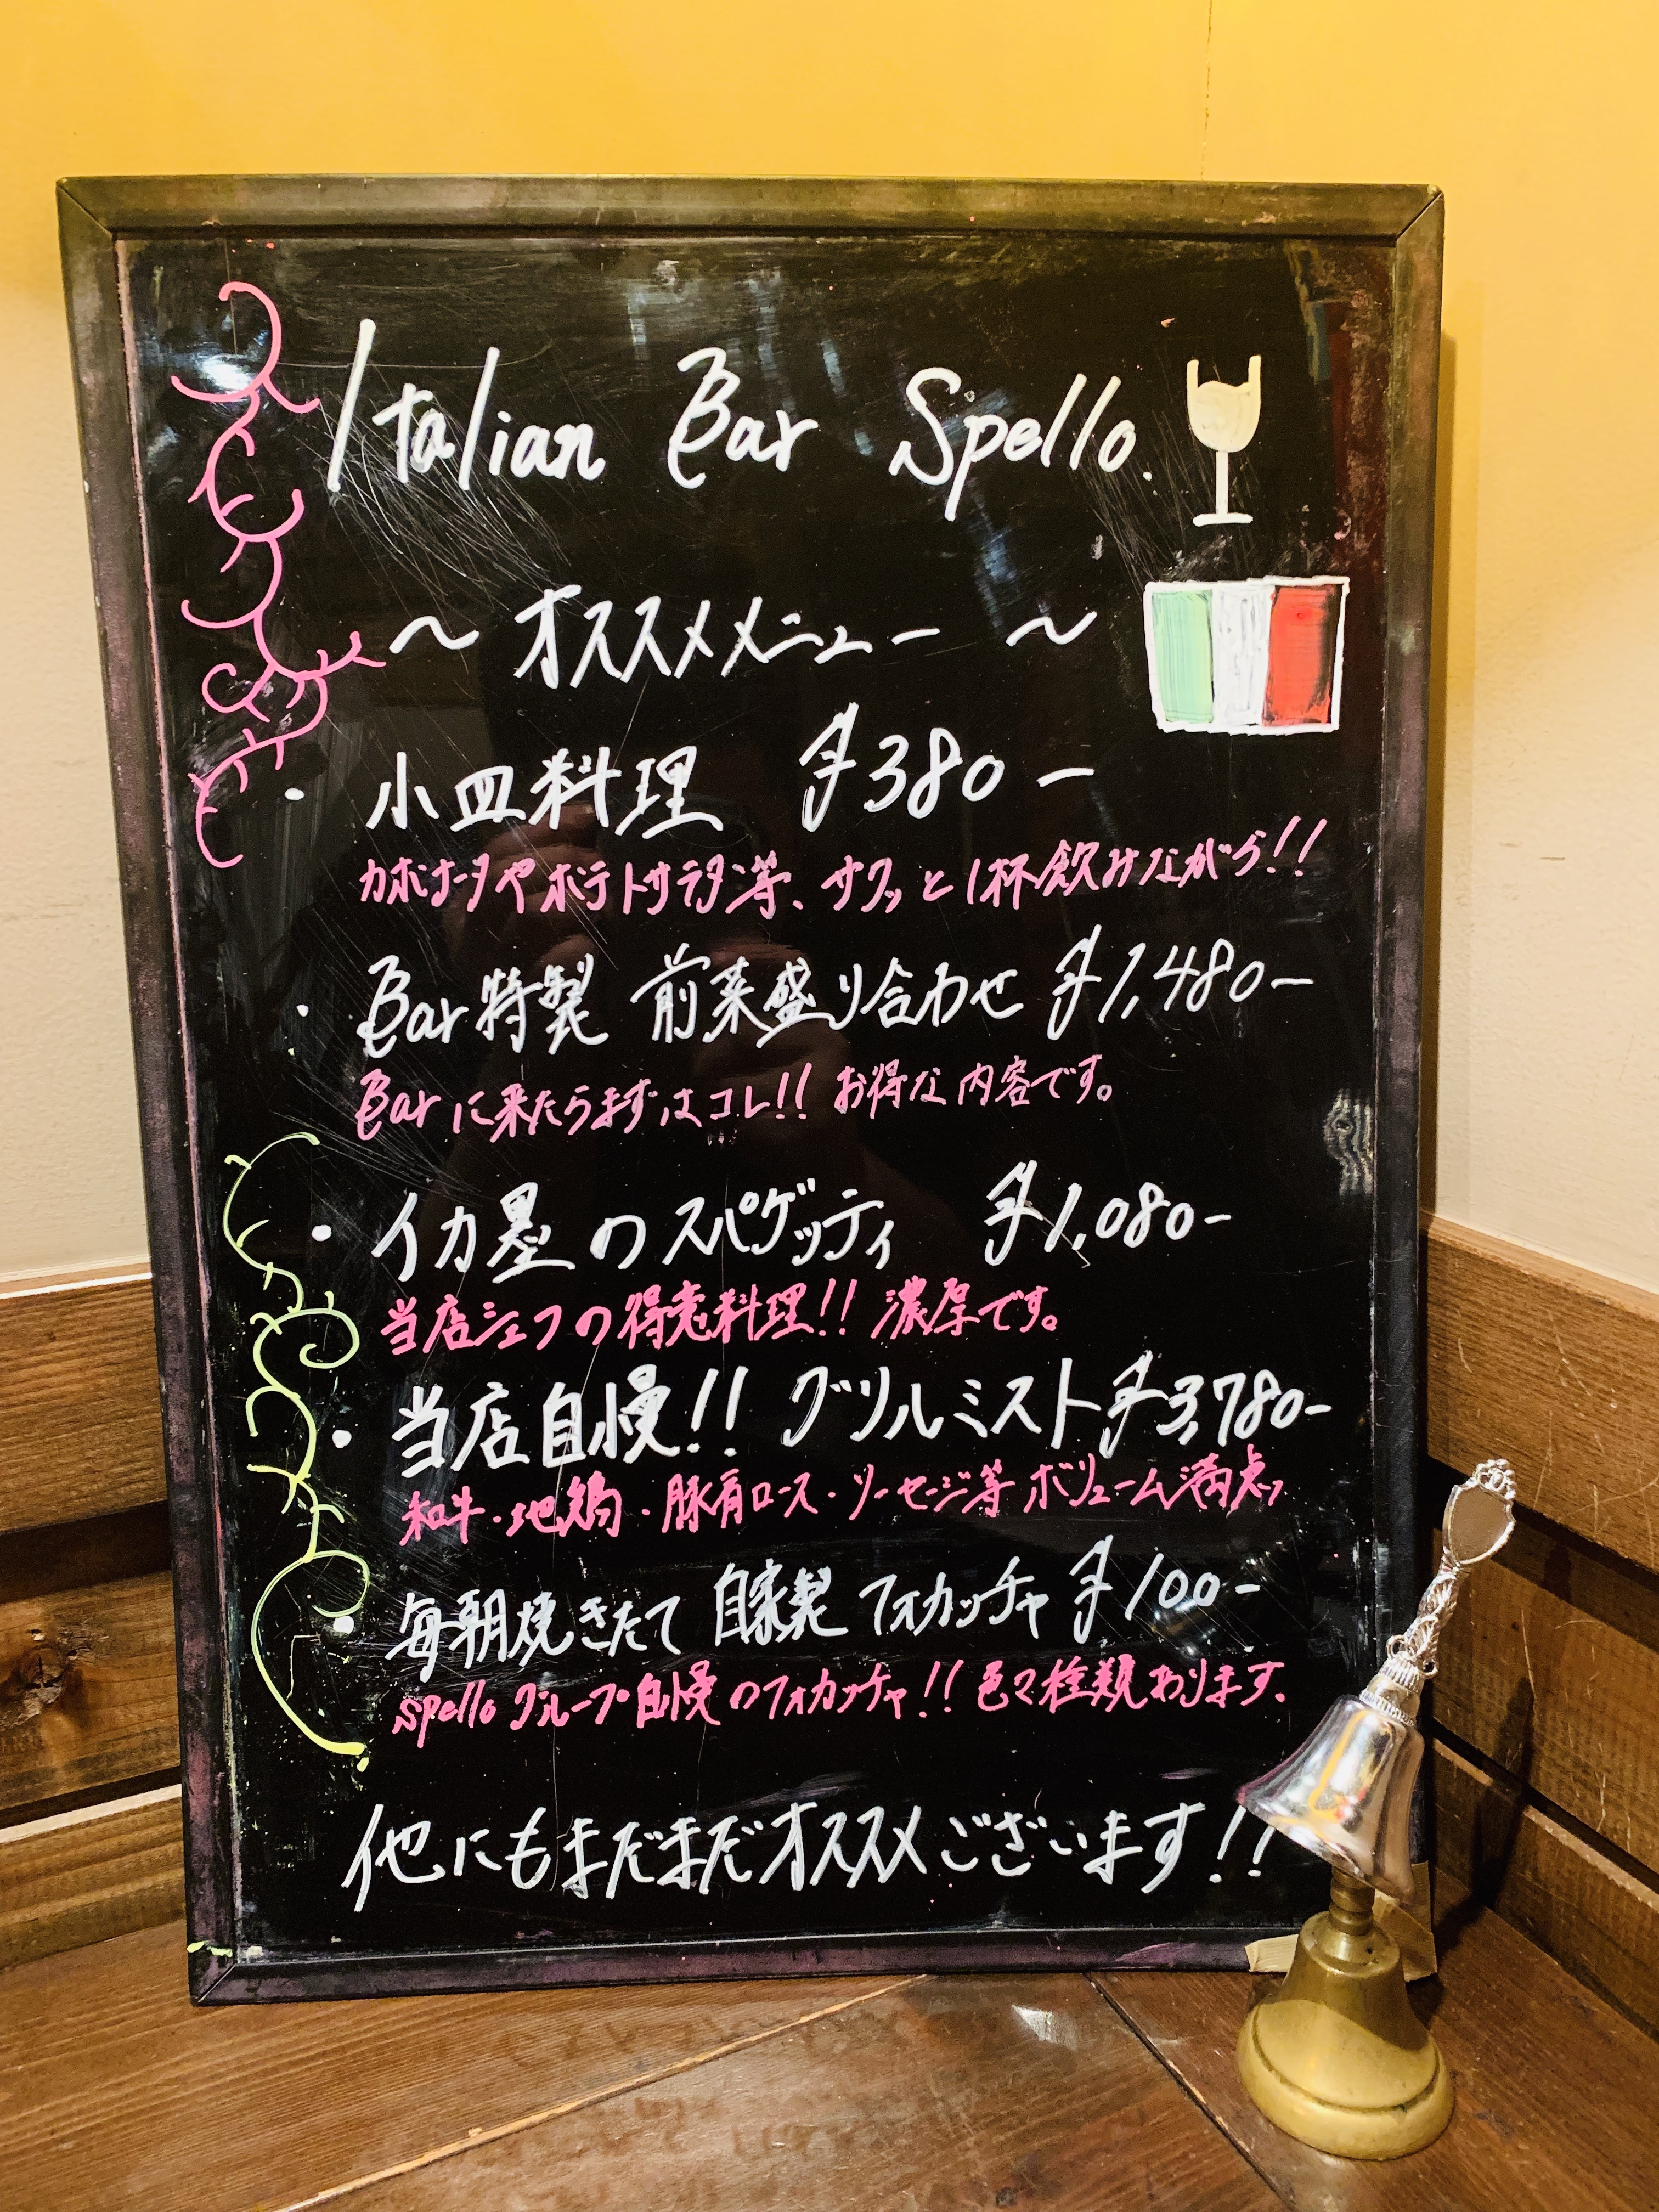 Italian Bar Spello.
～オススメメニュー ～
・小皿料理 ¥380ー
カポナータやポテトサラダ等、サクッと1杯飲みながら!!
・Bar特製 前菜盛り合わせ ¥1,480ー
Barに来たらまずはコレ!! お得な内容です。
・イカ墨のスパゲッティ ¥1,080-
当店シェフの得意料理!! 濃厚です。
・当店自慢!! グリルミスト¥3,780-
和牛・地鶏・豚肩ロース・ソーセージ等 ボリューム満点ッ
・毎朝焼きたて 自家製 フォカッチャ ¥100-
spelloグループ自慢のフォカッチャ!! 色々種類あります.
他にもまだまだオススメございます!!